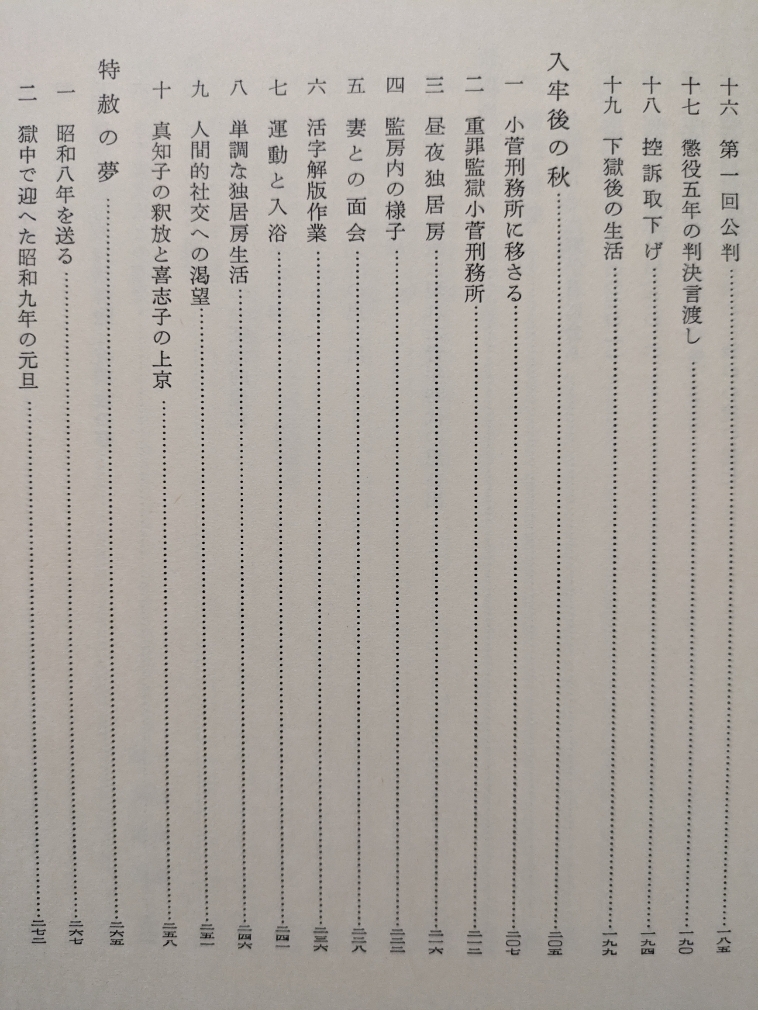 十六 第一回公判……一八五
十七 懲役五年の判決言渡し……一九〇
十八 控訴取下げ……一九四
十九 下獄後の生活……一九九
入牢後の秋……二〇五
一 小菅刑務所に移さる……二〇七
二 重罪監獄小菅刑務所……二一二
三 昼夜独居房……二一六
四 監房内の様子……二二二
五 妻との面会……二二八
六 活字解版作業……二三六
七 運動と入浴……二四一
八 単調な独居房生活……二四六
九 人間的社交への渇望……二五一
十 真知子の釈放と喜志子の上京……二五八
特赦の夢……二六五
一 昭和八年を送る……二六七
二 獄中で迎へた昭和九年の元旦……二七二